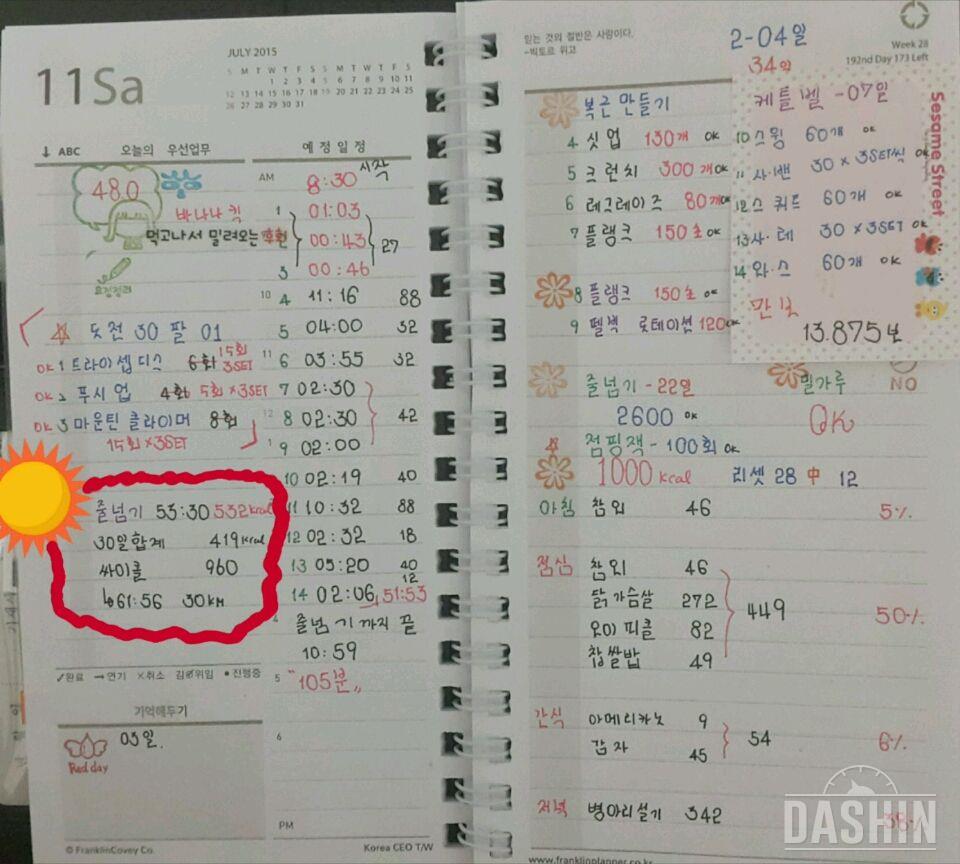 11 Sa
JULY 2015
S M T W T F S
1 2 3 4
5 6 7 8 9 10 11
12 13 14 15 16 17 18
19 20 21 22 23 24 25
26 27 28 29 30 31
↓ ABC 오늘의 우선업무
480
바나나 킥
먹고나서 밀려오는 후회
요점정리
도전 30 팔 01
OK 1 트라이셉 딥스 6회 15회 3SET
OK 2 푸시 업 4회 5회×3SET
OK 3 마운틴 클라이머 8회
15회×3SET
줄넘기 53:30 532kcal
30일합계 419kcal
싸이클 960
↳61:56 30KM
✓완료 →연기 ×취소 위임 •진행중
기억해두기
03일.
Red day
© FranklinCovey Co.
예정일정
AM 8:30 시작
1 01:03
00:43 27
3 00:46
10 4 11:16 88
5 04:00 32
11 6 03:55 32
7 02:30
12 8 02:30 42
1 9 02:00
10 02:19 40
11 10:32 88
12 02:32 18
13 05:20 40
12
14 02:06 51:53
4 줄넘기까지 끝
10:59
5 "105분"
6
PM
Korea CEO T/W
믿는 것의 절반은 사랑이다.
-빅토르 위고
2-04일
34
Week 28
192nd Day 173 Left
복근 만들기
4 싯업 130개 OK
5 크런치 300개 OK
6 레그레이즈 80개 OK
7 플랭크 150초 OK
8 플랭크 150초 OK
9 펠빅 로테이션 120 OK
케틀벨 -07일
10 스윙 60개 OK
11 사·밴 30×3SET씩 OK
12 스쿼트 60개 OK
13 사·레 30×3SET OK
14 와·스 60개 OK
만보
13.875보
Sesame Street
줄넘기 -22일
2600 OK
밀가루 NO
OK
점핑잭 -100회 OK
1000 kcal 리셋 28 中 12
아침 참외 46 5%
점심 참외 46
닭가슴살 272
오이피클 82
찹쌀밥 49
449 50%
간식 아메리카노 9
감자 45
54 6%
저녁 병아리설기 342 38%
www.franklinplanner.co.kr
DASHIN